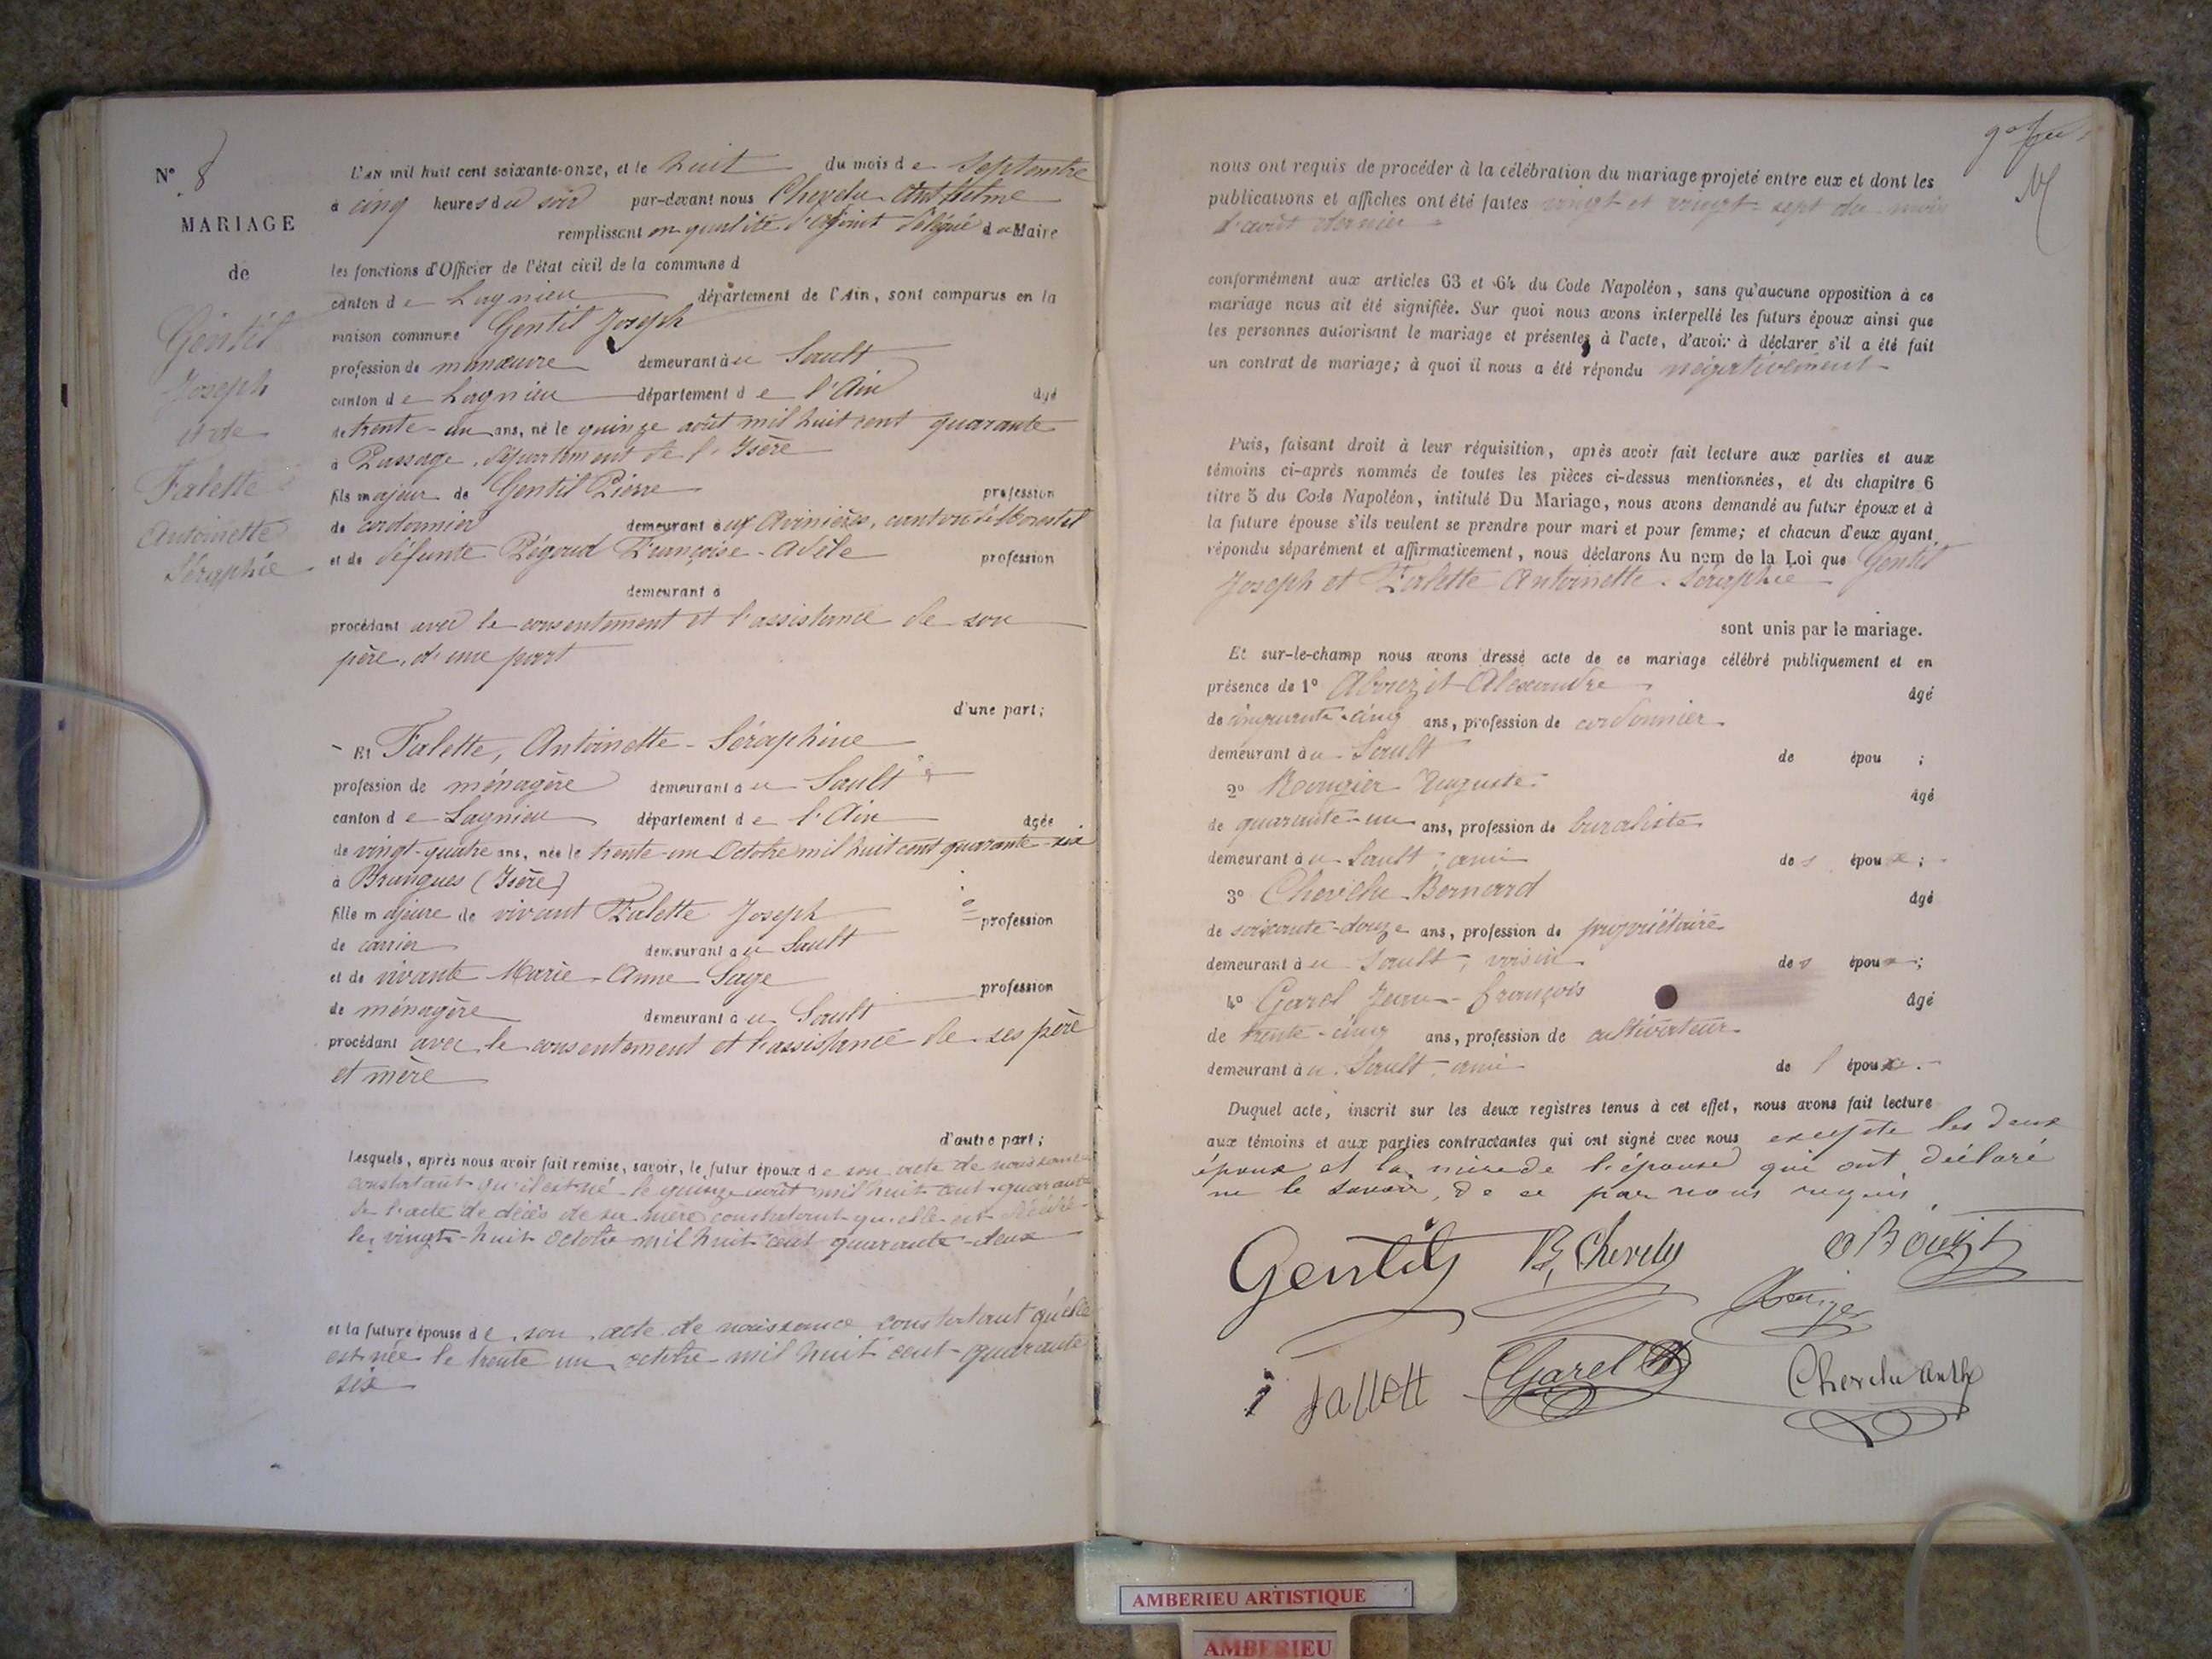 N° 8
MARIAGE
de
Gentil
Joseph
et de
Falette
Antoinette
Séraphie
L'AN mil huit cent soixante-onze, et le huit du mois de Septembre
à cinq heures du soir par-devant nous Chevelu Anthelme
remplissant en qualité d'adjoint délégué du Maire
les fonctions d'Officier de l'état civil de la commune d
canton de Lagnieu département de l'Ain, sont comparus en la
maison commune Gentil Joseph
profession de manœuvre demeurant àu Sault
canton de Lagnieu département de l'Ain âgé
de trente-un ans, né le quinze août mil huit cent quarante
à Passage, département de l'Isère
fils majeur de Gentil Pierre profession
de cordonnier demeurant aux Avinières, canton de Morestel
et de défunte Pégoud Françoise-Adèle profession
demeurant à
procédant avec le consentement et l'assistance de son
père, d'une part
d'une part;
Et Falette, Antoinette-Séraphine
profession de ménagère demeurant àu Sault
canton de Lagnieu département de l'Ain âgée
de vingt-quatre ans, née le trente-un Octobre mil huit cent quarante-six
à Brangues (Isère)
fille majeure de vivant Falette Joseph profession
de carrier demeurant àu Sault
et de vivante Marie-Anne Sage profession
de ménagère demeurant àu Sault
procédant avec le consentement et l'assistance de ses père
et mère
d'autre part;
Lesquels, après nous avoir fait remise, savoir, le futur époux de son acte de naissance
constatant qu'il est né le quinze août mil huit cent quarante
de l'acte de décès de sa mère constatant qu'elle est décédée
le vingt-huit octobre mil huit cent quarante-deux
et la future épouse de son acte de naissance constatant qu'elle
est née le trente un octobre mil huit cent quarante
six
nous ont requis de procéder à la célébration du mariage projeté entre eux et dont les
publications et affiches ont été faites vingt et vingt-sept du mois
d'août dernier
conformément aux articles 63 et 64 du Code Napoléon, sans qu'aucune opposition à ce
mariage nous ait été signifiée. Sur quoi nous avons interpellé les futurs époux ainsi que
les personnes autorisant le mariage et présentes à l'acte, d'avoir à déclarer s'il a été fait
un contrat de mariage; à quoi il nous a été répondu négativement
Puis, faisant droit à leur réquisition, après avoir fait lecture aux parties et aux
témoins ci-après nommés de toutes les pièces ci-dessus mentionnées, et du chapitre 6
titre 5 du Code Napoléon, intitulé Du Mariage, nous avons demandé au futur époux et à
la future épouse s'ils veulent se prendre pour mari et pour femme; et chacun d'eux ayant
répondu séparément et affirmativement, nous déclarons Au nom de la Loi que Gentil
Joseph et Falette Antoinette-Séraphie
sont unis par le mariage.
Et sur-le-champ nous avons dressé acte de ce mariage célébré publiquement et en
présence de 1° Abouzit Alexandre âgé
de cinquante-cinq ans, profession de cordonnier
demeurant àu Sault de épou ;
2° Rougier Auguste âgé
de quarante-un ans, profession de buraliste
demeurant àu Sault, ami des époux;
3° Chevelu Bernard âgé
de soixante-douze ans, profession de propriétaire
demeurant àu Sault, voisin des époux;
4° Garel Jean-françois âgé
de trente-cinq ans, profession de cultivateur
demeurant àu Sault, ami de l époux.
Duquel acte, inscrit sur les deux registres tenus à cet effet, nous avons fait lecture
aux témoins et aux parties contractantes qui ont signé avec nous excepté les deux
époux et la mère de l'épouse qui ont déclaré
ne le savoir, de ce par nous requis
Gentil B, Chevelu
Garel Chevelu Anth
AMBERIEU ARTISTIQUE
AMBERIEU